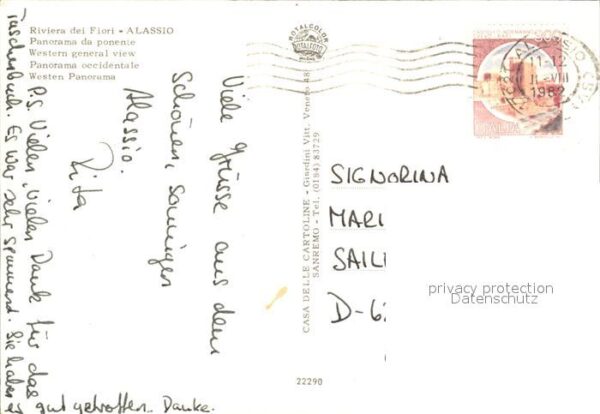 Riviera dei Fiori - ALASSIO
Panorama da ponente
Western general view
Panorama occidentale
Westen Panorama
ROTALCOLOR
ROTALFOTO
Viele Grüsse aus dem
schönen, sonnigen
Alassio.
Rita
P.S. Vielen, vielen Dank für das
Taschenbuch. Es war sehr spannend. Sie haben es
gut getroffen. Danke.
CASA DELLE CARTOLINE - Giardini Vitt. Veneto
SANREMO - Tel. (0184) 83729
22290
ITALIA
11-12
1982
SIGNORINA
MARI
SAIL
D-6
privacy protection
Datenschutz